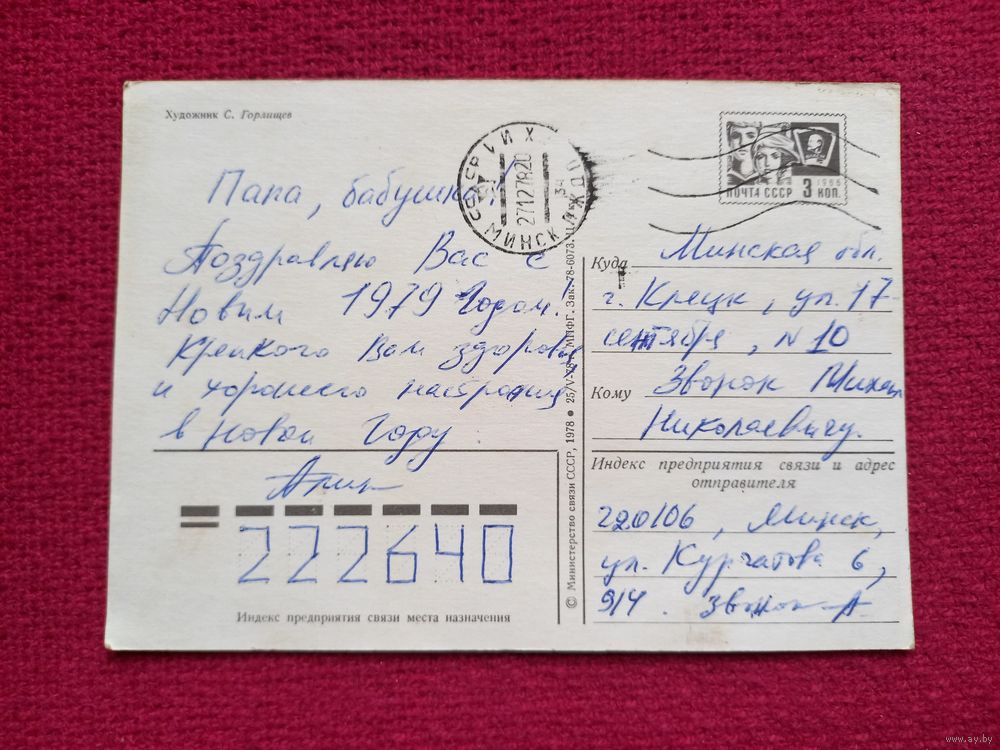 Художник С. Горлищев
Папа, бабушка!
Поздравляю Вас с
Новым 1979 Годом.
Крепкого Вам здоровья
и хорошего настроения
в новом Году
227127820
МИНСК
ПОЧТА СССР 3 КОП.
1966
Куда Минская обл.
г. Клецк, ул. 17
сентября, N 10
Кому Звонок Михаил
Николаевичу.
Индекс предприятия связи и адрес
отправителя
220106, Минск,
ул. Курчатова 6,
914. Звонок А
222640
Индекс предприятия связи места назначения
© Министерство связи СССР, 1978 ● 25/V-78 г. МПФГ. Зак. 78-6073.
www.ay.by